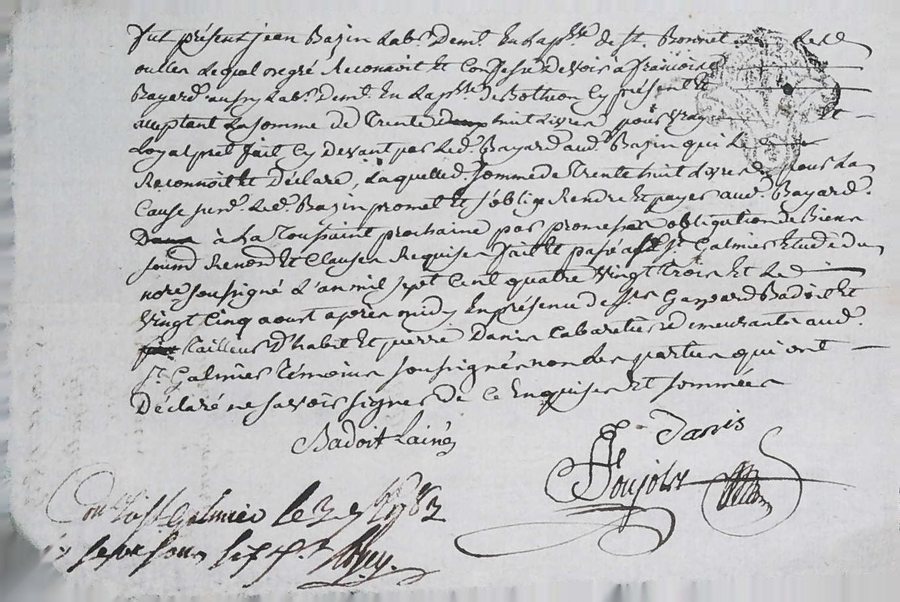 fut présent jean Bazin Lab.r dem.t En La p.sse de St. Bonnet Les
oulles Lequel de gré Reconnoit Et Confesse devoir à francoise
Bayard aussy Lab.r dem.t En La p.sse de Botheon Cy présent Et
acceptant La somme de trente huit Livres pour vray Et
Loyal pret fait Cy devant par Led. Bayard aud. Bazin qui Le
Reconnoit Et Déclare, Laquelle d. somme de trente huit Livres pour La
Cause susd. Led. Bazin promet Et s'oblige Rendre Et payer aud. Bayard
à La toussaint prochaine par promesse obligation de Biens
soumd Renond Et Clauses Requises fait Et passé a St Galmier Etude du
no.re soussigné L'an mil sept Cent quatre Vingt trois Et Le
Vingt Cinq aoust après midy En présence de Gaspard Badoit Et
tailleur D'habit Et pierre Danis Cabaretier demeurants aud.
St. Galmier témoins soussignés non Les parties qui ont
Déclaré ne savoir signer de Ce Enquises Et sommées
Badoit Lainé Danis
Ponjolis
Con.lé à St Galmier le 3 7bre 1783